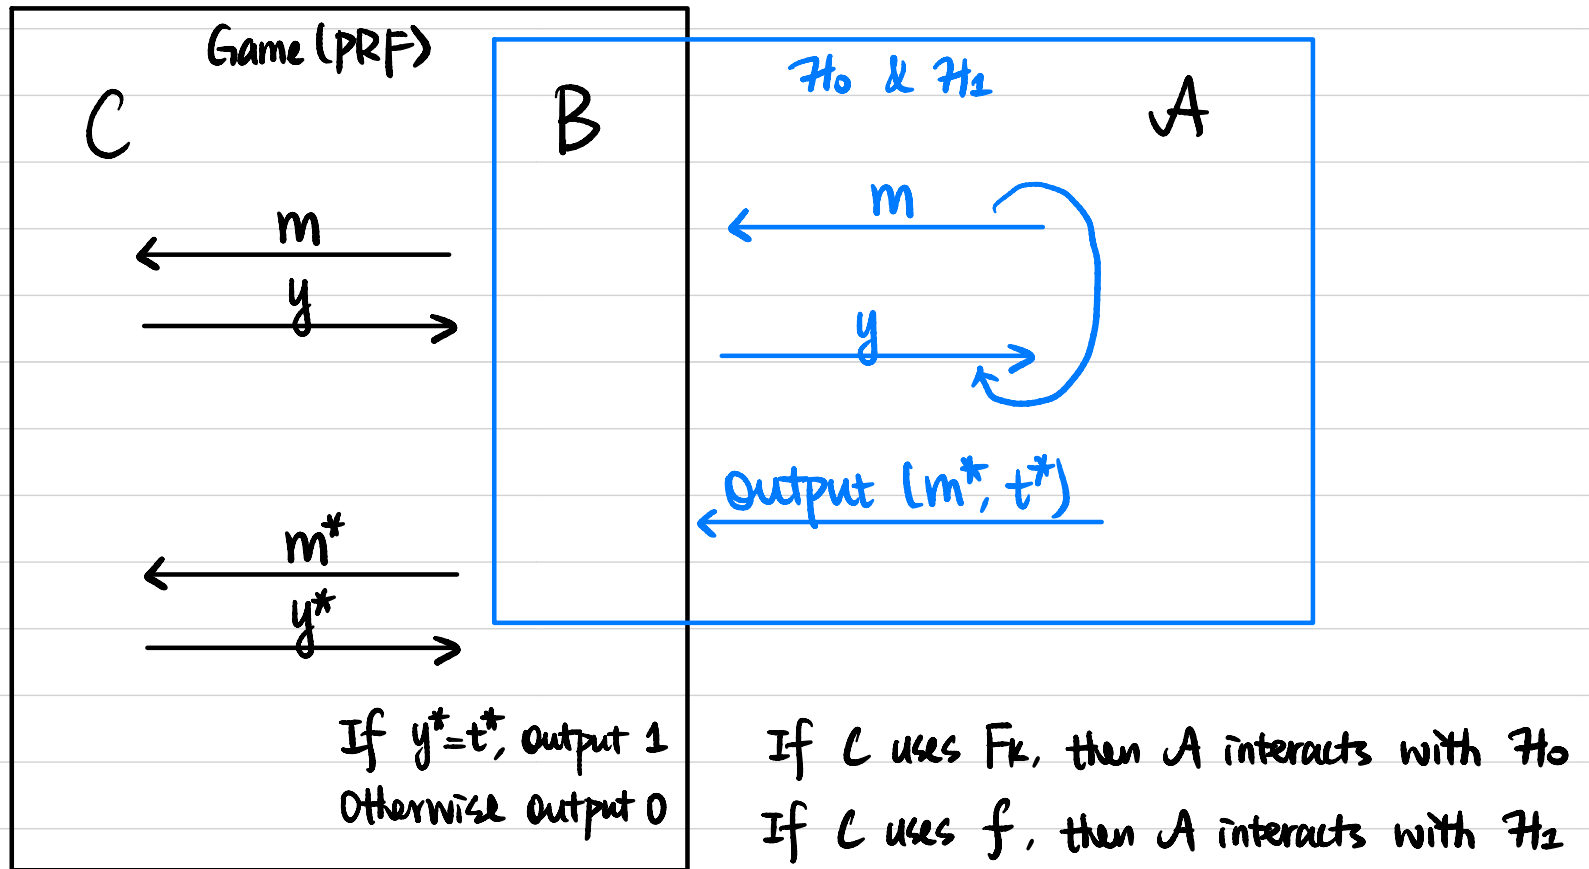 Game (PRF)
H₀ & H₁
C
B
A
m
y
m
y
Output (m*, t*)
m*
y*
If y*=t*, output 1
Otherwise output 0
If C uses Fₖ, then A interacts with H₀
If C uses f, then A interacts with H₁